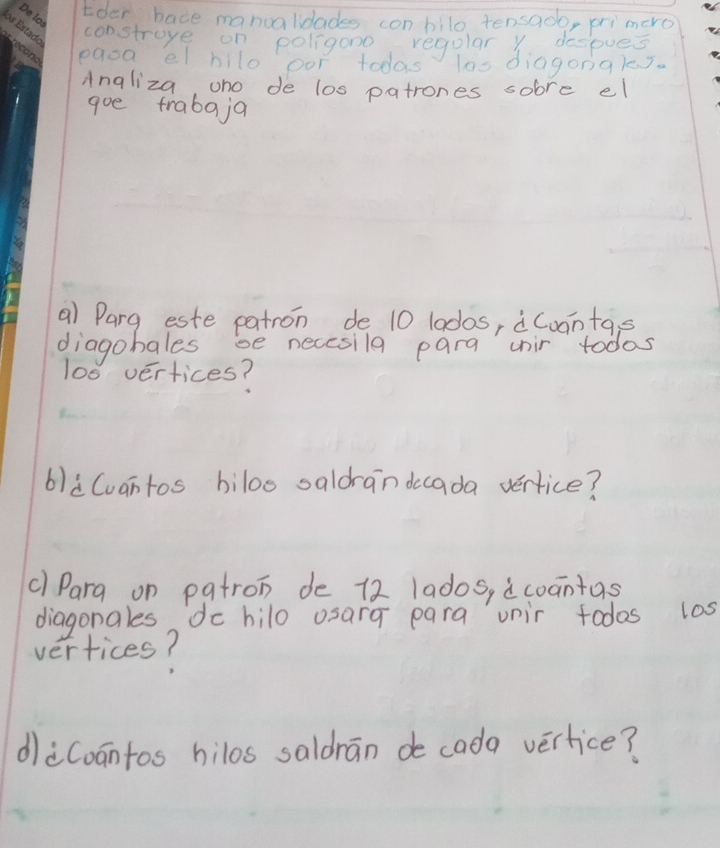 De los
los Estados
Eder hace manualidades con hilo tensado, primero
construye un polígono regular y despues
pasa el hilo por todas las diagonales.
Analiza uno de los patrones sobre el
que trabaja
a) Para este patrón de 10 lados, ¿Cuántas
diagonales se necesila para unir todos
los vértices?
b) ¿Cuántos hilos saldrán de cada vértice?
c) Para un patrón de 12 lados, ¿cuántas
diagonales de hilo usara para unir todos los
vértices?
d) ¿Cuántos hilos saldrán de cada vértice?